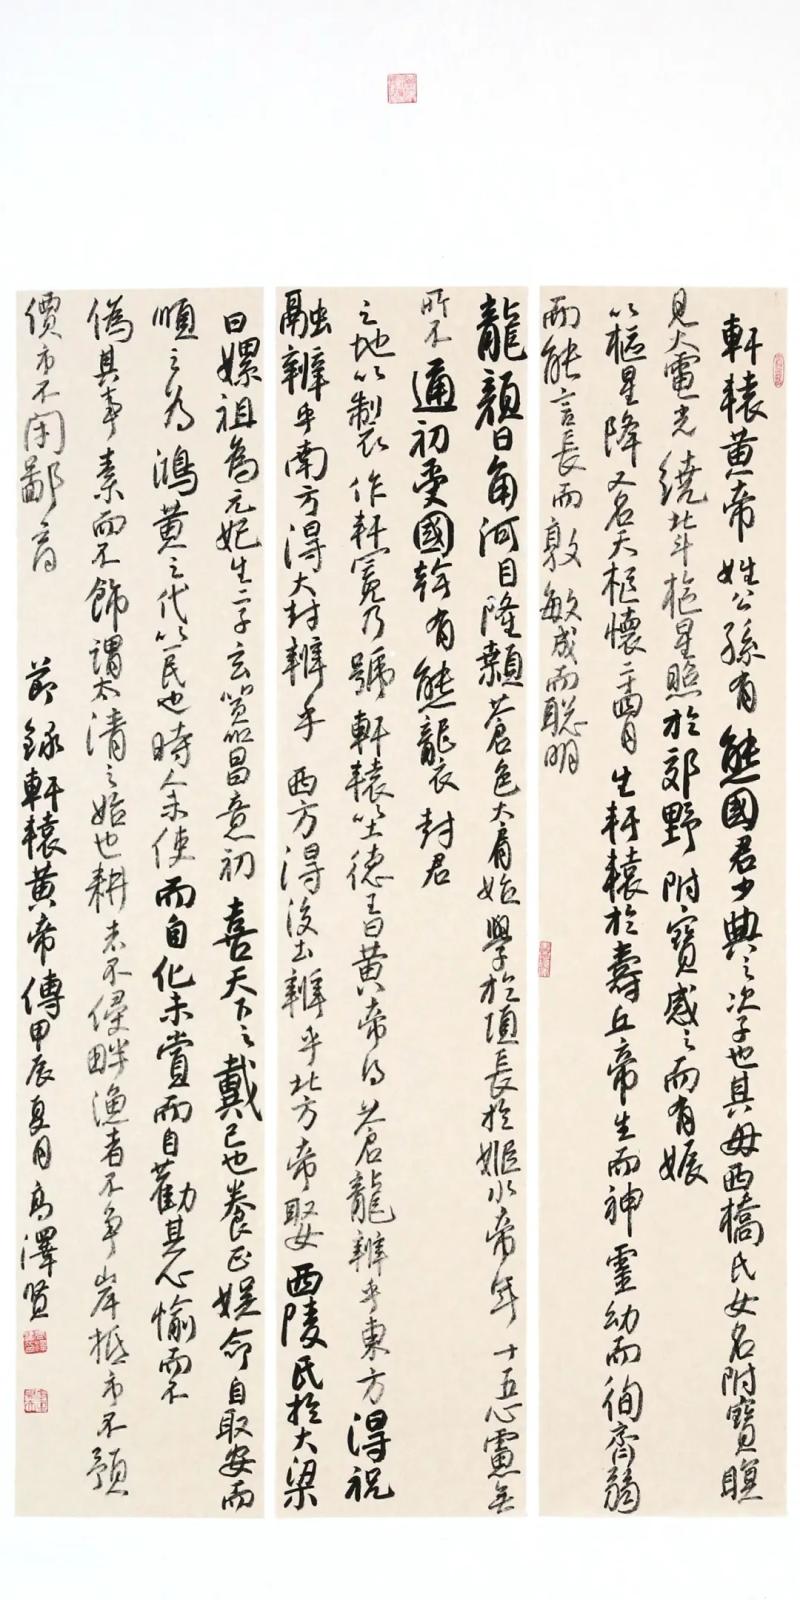 軒轅黄帝姓公孫有熊國君少典之次子也其母西橋氏女名附寶瞑
見大電光繞北斗樞星照於郊野附寶感之而有娠
以樞星降又名天樞懷二十四月生軒轅於壽丘帝生而神靈幼而徇齊弱
而能言長而敦敏成而聡明
龍顔日角河目隆顙蒼色大肩始學於項長於姬水帝年十五心慮無
所不通初受國於有熊龍衣封君
之地以制衣作軒冕乃號軒轅以土德王曰黄帝得蒼龍辨乎東方得祝
融辨乎南方得大封辨乎西方得後土辨乎北方帝娶西陵氏於大梁
曰嫘祖為元妃生二子玄囂昌意初喜天下之戴己也養正娱命自取安而
順之為鴻黄之代以一民也時人未使而自化未賞而自勸其心愉而不
偽其事素而不飾謂太清之始也耕者不侵畔漁者不争岸抵市不預
價市不閉鄙
節錄軒轅黄帝傳甲辰夏月高澤賢